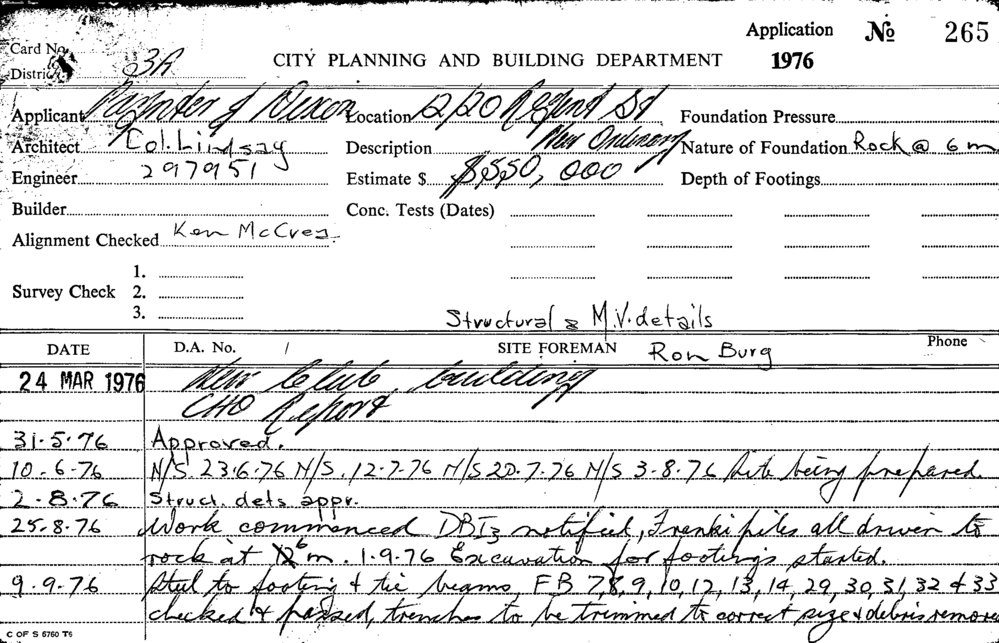 Application № 265
Card No.
District 3A
CITY PLANNING AND BUILDING DEPARTMENT 1976
Applicant Paynter & Dixon Location 2/20 Regent St Foundation Pressure
Architect Col. Lindsay Description New Ordinary Nature of Foundation Rock @ 6 m
Engineer 297951 Estimate $ $550,000 Depth of Footings
Builder Conc. Tests (Dates)
Alignment Checked Ken McCrea
1.
Survey Check 2.
3.
Structural & M.V. details
DATE D.A. No. / SITE FOREMAN Ron Burg Phone
24 MAR 1976 New Club building
CHO Report
31-5-76 Approved.
10-6-76 N/S. 23.6.76 N/S. 12-7-76 N/S 20-7-76 N/S 3-8-76 Site being prepared
2-8-76 Struct. dets appr.
25-8-76 Work commenced DBI3 notified, Franki piles all driven to
rock at 6 m. 1-9-76 Excavation for footings started.
9-9-76 Steel to footing & tie beams, FB 7,8,9,10,12,13,14,29,30,31,32 & 33
checked & passed, trenches to be trimmed to correct size & debris remove
C OF S 6760 T6